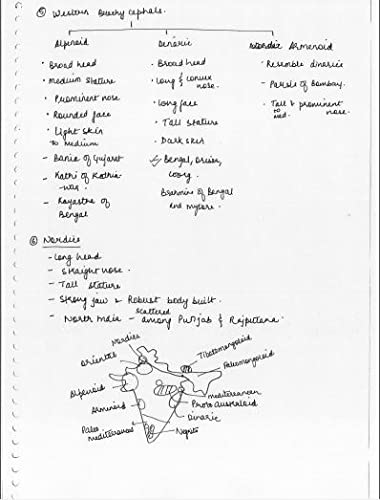 ⑤ Western Brachy cephals.
Alpenoid
• Broad head
• medium stature
• Prominent nose
• Rounded face
• Light skin
to medium
- Bania of Gujarat
- Kathi of Kathia-
war.
- Kayastha of
Bengal
Dinaric
• Broad head
• Long & convex
nose.
• Long face
• Tall stature
• Dark skin
Bengal, Orissa,
Coorg.
Brahmins of Bengal
and mysore.
Armenoid
• Resemble dinarics
• Parsis of Bombay.
• Tall & prominent
to med. nose.
⑥ Nordics
- Long head
- Straight nose.
- Tall stature
- Strong jaw & Robust body built.
- North India - scattered among Punjab & Rajputana.
Nordics
Oriental
Tibetomongoloid
Paleomongoloid
Alpenoid
mediterranean
Armenoid
Proto Australoid
Dinaric
Paleo
mediterranean
Negrito